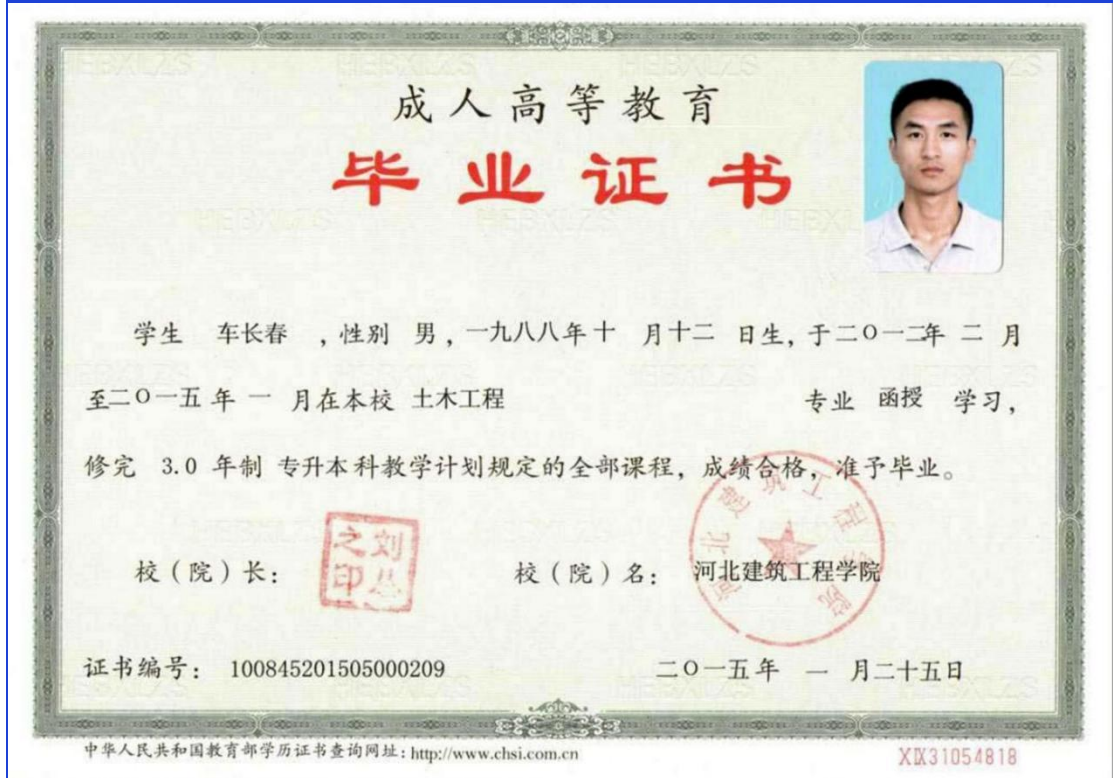 成人高等教育
毕业证书
学生 车长春 ，性别 男，一九八八年十 月十二 日生，于二〇一二年 二 月
至二〇一五 年 一 月在本校 土木工程 专业 函授 学习，
修完 3.0 年制 专升本科教学计划规定的全部课程，成绩合格，准予毕业。
校（院）长： 校（院）名： 河北建筑工程学院
河北建筑工程学院
证书编号： 100845201505000209 二〇一五年 一 月二十五日
中华人民共和国教育部学历证书查询网址：http://www.chsi.com.cn
XIX31054818
HEBXLZS